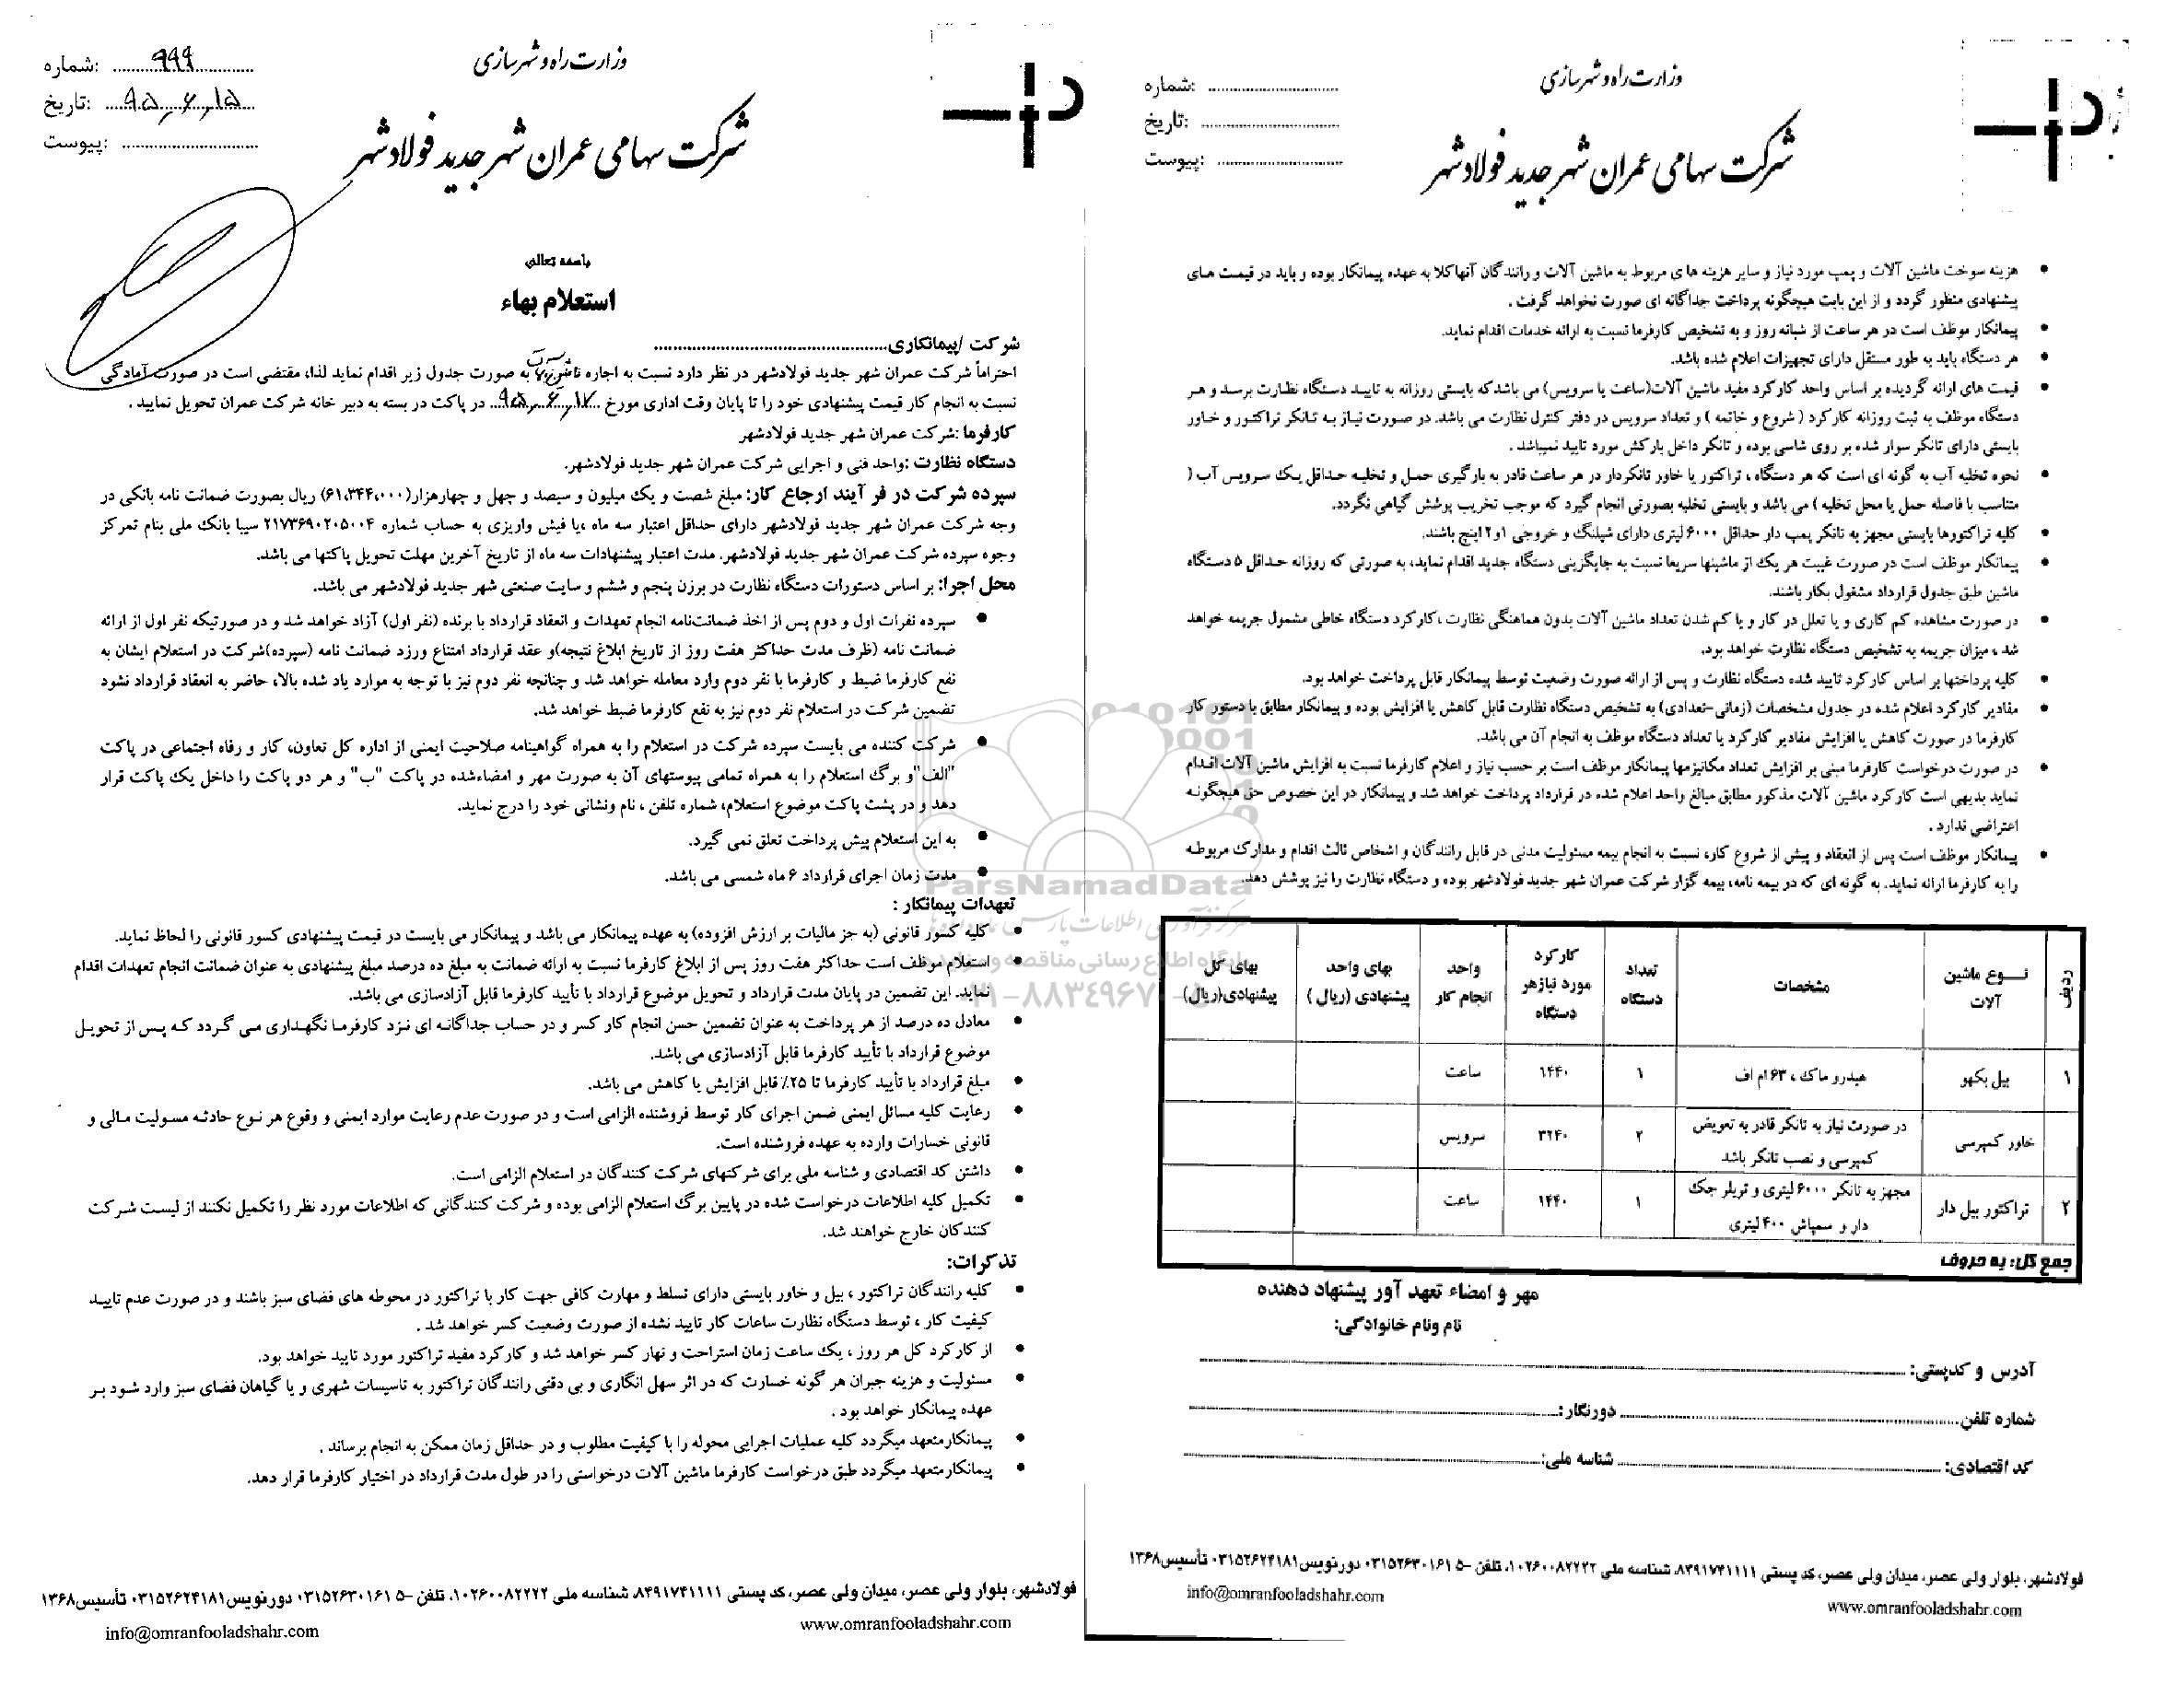 وزارت راه و شهرسازی
شرکت سهامی عمران شهر جدید فولادشهر
شماره: ۹۹۹
تاریخ: ۹۵,۶,۱۵
پیوست:
باسمه تعالی
استعلام بهاء
شرکت /پیمانکاری
احتراماً شرکت عمران شهر جدید فولادشهر در نظر دارد نسبت به اجاره به صورت جدول زیر اقدام نماید لذا، مقتضی است در صورت آمادگی
نسبت به انجام کار قیمت پیشنهادی خود را تا پایان وقت اداری مورخ ۹۵,۶,۱۷ در پاکت در بسته به دبیر خانه شرکت عمران تحویل نمایید .
کارفرما :شرکت عمران شهر جدید فولادشهر
دستگاه نظارت :واحد فنی و اجرایی شرکت عمران شهر جدید فولادشهر.
سپرده شرکت در فر آیند ارجاع کار: مبلغ شصت و یک میلیون و سیصد و چهل و چهارهزار(۶۱،۳۴۴،۰۰۰) ریال بصورت ضمانت نامه بانکی در
وجه شرکت عمران شهر جدید فولادشهر دارای حداقل اعتبار سه ماه ،یا فیش واریزی به حساب شماره ۲۱۷۳۶۹۰۲۰۵۰۰۴ سیبا بانک ملی بنام تمرکز
وجوه سپرده شرکت عمران شهر جدید فولادشهر. مدت اعتبار پیشنهادات سه ماه از تاریخ آخرین مهلت تحویل پاکتها می باشد.
محل اجرا: بر اساس دستورات دستگاه نظارت در برزن پنجم و ششم و سایت صنعتی شهر جدید فولادشهر می باشد.
• سپرده نفرات اول و دوم پس از اخذ ضمانت‌نامه انجام تعهدات و انعقاد قرارداد با برنده (نفر اول) آزاد خواهد شد و در صورتیکه نفر اول از ارائه
ضمانت نامه (ظرف مدت حداکثر هفت روز از تاریخ ابلاغ نتیجه)و عقد قرارداد امتناع ورزد ضمانت نامه (سپرده)شرکت در استعلام ایشان به
نفع کارفرما ضبط و کارفرما با نفر دوم وارد معامله خواهد شد و چنانچه نفر دوم نیز با توجه به موارد یاد شده بالا، حاضر به انعقاد قرارداد نشود
تضمین شرکت در استعلام نفر دوم نیز به نفع کارفرما ضبط خواهد شد.
• شرکت کننده می بایست سپرده شرکت در استعلام را به همراه گواهینامه صلاحیت ایمنی از اداره کل تعاون، کار و رفاه اجتماعی در پاکت
"الف"و برگ استعلام را به همراه تمامی پیوستهای آن به صورت مهر و امضاءشده در پاکت "ب" و هر دو پاکت را داخل یک پاکت قرار
دهد و در پشت پاکت موضوع استعلام، شماره تلفن ، نام ونشانی خود را درج نماید.
• به این استعلام پیش پرداخت تعلق نمی گیرد.
• مدت زمان اجرای قرارداد ۶ ماه شمسی می باشد.
تعهدات پیمانکار :
• کلیه کسور قانونی (به جز مالیات بر ارزش افزوده) به عهده پیمانکار می باشد و پیمانکار می بایست در قیمت پیشنهادی کسور قانونی را لحاظ نماید.
• استعلام موظف است حداکثر هفت روز پس از ابلاغ کارفرما نسبت به ارائه ضمانت به مبلغ ده درصد مبلغ پیشنهادی به عنوان ضمانت انجام تعهدات اقدام
نماید. این تضمین در پایان مدت قرارداد و تحویل موضوع قرارداد با تأیید کارفرما قابل آزادسازی می باشد.
• معادل ده درصد از هر پرداخت به عنوان تضمین حسن انجام کار کسر و در حساب جداگانه ای نزد کارفرما نگهداری می گردد که پس از تحویل
موضوع قرارداد با تأیید کارفرما قابل آزادسازی می باشد.
• مبلغ قرارداد با تأیید کارفرما تا ۲۵٪ قابل افزایش یا کاهش می باشد.
• رعایت کلیه مسائل ایمنی ضمن اجرای کار توسط فروشنده الزامی است و در صورت عدم رعایت موارد ایمنی و وقوع هر نوع حادثه مسولیت مالی و
قانونی خسارات وارده به عهده فروشنده است.
• داشتن کد اقتصادی و شناسه ملی برای شرکتهای شرکت کنندگان در استعلام الزامی است.
• تکمیل کلیه اطلاعات درخواست شده در پایین برگ استعلام الزامی بوده و شرکت کنندگانی که اطلاعات مورد نظر را تکمیل نکنند از لیست شرکت
کنندکان خارج خواهند شد.
تذکرات:
• کلیه رانندگان تراکتور ، بیل و خاور بایستی دارای تسلط و مهارت کافی جهت کار با تراکتور در محوطه های فضای سبز باشند و در صورت عدم تایید
کیفیت کار ، توسط دستگاه نظارت ساعات کار تایید نشده از صورت وضعیت کسر خواهد شد .
• از کارکرد کل هر روز ، یک ساعت زمان استراحت و نهار کسر خواهد شد و کارکرد مفید تراکتور مورد تایید خواهد بود.
• مسئولیت و هزینه جبران هر گونه خسارت که در اثر سهل انگاری و بی دقتی رانندگان تراکتور به تاسیسات شهری و یا گیاهان فضای سبز وارد شود بر
عهده پیمانکار خواهد بود .
• پیمانکارمتعهد میگردد کلیه عملیات اجرایی محوله را با کیفیت مطلوب و در حداقل زمان ممکن به انجام برساند .
• پیمانکارمتعهد میگردد طبق درخواست کارفرما ماشین آلات درخواستی را در طول مدت قرارداد در اختیار کارفرما قرار دهد.
فولادشهر، بلوار ولی عصر، میدان ولی عصر، کد پستی ۸۴۹۱۷۴۱۱۱۱، شناسه ملی ۱۰۲۶۰۰۸۲۲۲۲، تلفن ۵-۰۳۱۵۲۶۳۰۱۶۱ دورنویس۰۳۱۵۲۶۲۴۱۸۱ تأسیس۱۳۶۸
www.omranfooladshahr.com
info@omranfooladshahr.com
وزارت راه و شهرسازی
شرکت سهامی عمران شهر جدید فولادشهر
شماره:
تاریخ:
پیوست:
• هزینه سوخت ماشین آلات و پمپ مورد نیاز و سایر هزینه های مربوط به ماشین آلات و رانندگان آنهاکلا به عهده پیمانکار بوده و باید در قیمت های
پیشنهادی منظور گردد و از این بابت هیچگونه پرداخت جداگانه ای صورت نخواهد گرفت .
• پیمانکار موظف است در هر ساعت از شبانه روز و به تشخیص کارفرما نسبت به ارائه خدمات اقدام نماید.
• هر دستگاه باید به طور مستقل دارای تجهیزات اعلام شده باشد.
• قیمت های ارائه گردیده بر اساس واحد کارکرد مفید ماشین آلات(ساعت یا سرویس) می باشدکه بایستی روزانه به تایید دستگاه نظارت برسد و هر
دستگاه موظف به ثبت روزانه کارکرد ( شروع و خاتمه ) و تعداد سرویس در دفتر کنترل نظارت می باشد. در صورت نیاز به تانکر تراکتور و خاور
بایستی دارای تانکر سوار شده بر روی شاسی بوده و تانکر داخل بارکش مورد تایید نمیباشد .
• نحوه تخلیه آب به گونه ای است که هر دستگاه ، تراکتور یا خاور تانکردار در هر ساعت قادر به بارگیری حمل و تخلیه حداقل یک سرویس آب (
متناسب با فاصله حمل یا محل تخلیه ) می باشد و بایستی تخلیه بصورتی انجام گیرد که موجب تخریب پوشش گیاهی نگردد.
• کلیه تراکتورها بایستی مجهز به تانکر پمپ دار حداقل ۶۰۰۰ لیتری دارای شیلنگ و خروجی ۱و۲ اینچ باشند.
• پیمانکار موظف است در صورت غیبت هر یک از ماشینها سریعا نسبت به جایگزینی دستگاه جدید اقدام نماید، به صورتی که روزانه حداقل ۵ دستگاه
ماشین طبق جدول قرارداد مشغول بکار باشند.
• در صورت مشاهده کم کاری و یا تعلل در کار و یا کم شدن تعداد ماشین آلات بدون هماهنگی نظارت ،کارکرد دستگاه خاطی مشمول جریمه خواهد
شد ، میزان جریمه به تشخیص دستگاه نظارت خواهد بود.
• کلیه پرداختها بر اساس کارکرد تایید شده دستگاه نظارت و پس از ارائه صورت وضعیت توسط پیمانکار قابل پرداخت خواهد بود.
• مقادیر کارکرد اعلام شده در جدول مشخصات (زمانی-تعدادی) به تشخیص دستگاه نظارت قابل کاهش یا افزایش بوده و پیمانکار مطابق با دستور کار
کارفرما در صورت کاهش یا افزایش مقادیر کارکرد یا تعداد دستگاه موظف به انجام آن می باشد.
• در صورت درخواست کارفرما مبنی بر افزایش تعداد مکانیزمها پیمانکار موظف است بر حسب نیاز و اعلام کارفرما نسبت به افزایش ماشین آلات اقدام
نماید بدیهی است کارکرد ماشین آلات مذکور مطابق مبالغ واحد اعلام شده در قرارداد پرداخت خواهد شد و پیمانکار در این خصوص حق هیچگونه
اعتراضی ندارد .
• پیمانکار موظف است پس از انعقاد و پیش از شروع کار، نسبت به انجام بیمه مسئولیت مدنی در قابل رانندگان و اشخاص ثالث اقدام و مدارک مربوطه
را به کارفرما ارائه نماید. به گونه ای که در بیمه نامه، بیمه گزار شرکت عمران شهر جدید فولادشهر بوده و دستگاه نظارت را نیز پوشش دهد.
ردیف | نوع ماشین آلات | مشخصات | تعداد دستگاه | کارکرد مورد نیازهر دستگاه | واحد انجام کار | بهای واحد پیشنهادی (ریال ) | بهای کل پیشنهادی(ریال)
۱ | بیل بکهو | هیدرو ماک ، ۶۳ ام اف | ۱ | ۱۴۴۰ | ساعت
خاور کمپرسی | در صورت نیاز به تانکر قادر به تعویض کمپرسی و نصب تانکر باشد | ۲ | ۳۲۴۰ | سرویس
۲ | تراکتور بیل دار | مجهز به تانکر ۶۰۰۰ لیتری و تریلر جک دار و سمپاش ۴۰۰ لیتری | ۱ | ۱۴۴۰ | ساعت
جمع کل: به حروف
مهر و امضاء تعهد آور پیشنهاد دهنده
نام ونام خانوادگی:
آدرس و کدپستی:
شماره تلفن دورنگار:
کد اقتصادی: شناسه ملی:
فولادشهر، بلوار ولی عصر، میدان ولی عصر، کد پستی ۸۴۹۱۷۴۱۱۱۱، شناسه ملی ۱۰۲۶۰۰۸۲۲۲۲، تلفن ۵-۰۳۱۵۲۶۳۰۱۶۱ دورنویس۰۳۱۵۲۶۲۴۱۸۱ تأسیس۱۳۶۸
www.omranfooladshahr.com
info@omranfooladshahr.com
ParsNamadData
پایگاه اطلاع رسانی مناقصه و